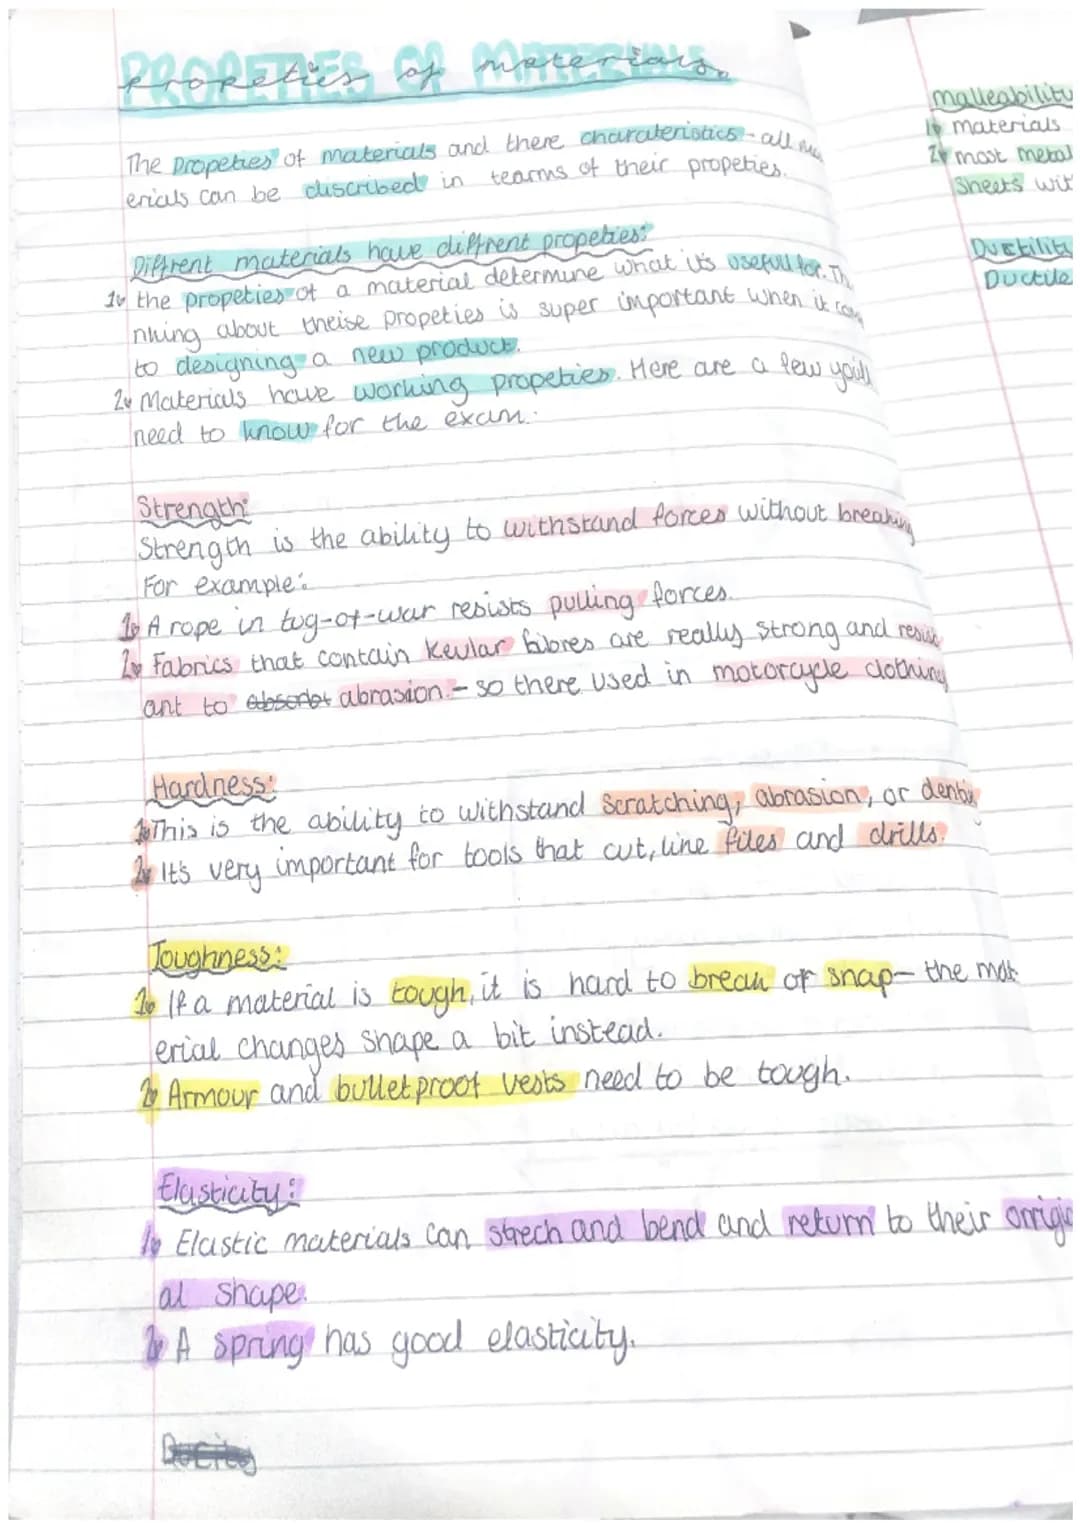 PROPETIES OF MATERIALS
Propeties of materials.
The propeties of materials and there charateristics - all
erials can be discribed in tearms of their propeties.
Diffrent materials have diffrent propeties:
1. the propeties of a material determine what it's usefull for. Th
nking about theise propeties is super important when it
to designing a new product.
2. Materials have working propeties. Here are a few you'll
need to know for the exam:
Strength:
Strength is the ability to withstand forces without breaking
For example:
1. A rope in tug-of-war resists pulling forces.
2. Fabrics that contain kevlar fibres are really strong and resist
ant to abrasion. - so there used in motorcycle clothing
Hardness:
1. This is the ability to withstand scratching, abrasion, or
2. It's very important for tools that cut, line files and drills.
Toughness:
1. If a material is tough, it is hard to break or snap - the mat
erial changes shape a bit instead.
2. Armour and bulletproof vests need to be tough.
Elasticity:
1. Elastic materials can strech and bend and return to their orrigi
al shape.
2. A spring has good elasticity.
malleability
1. materials
2. most metal
Sheets wit
Ductility
Ductile